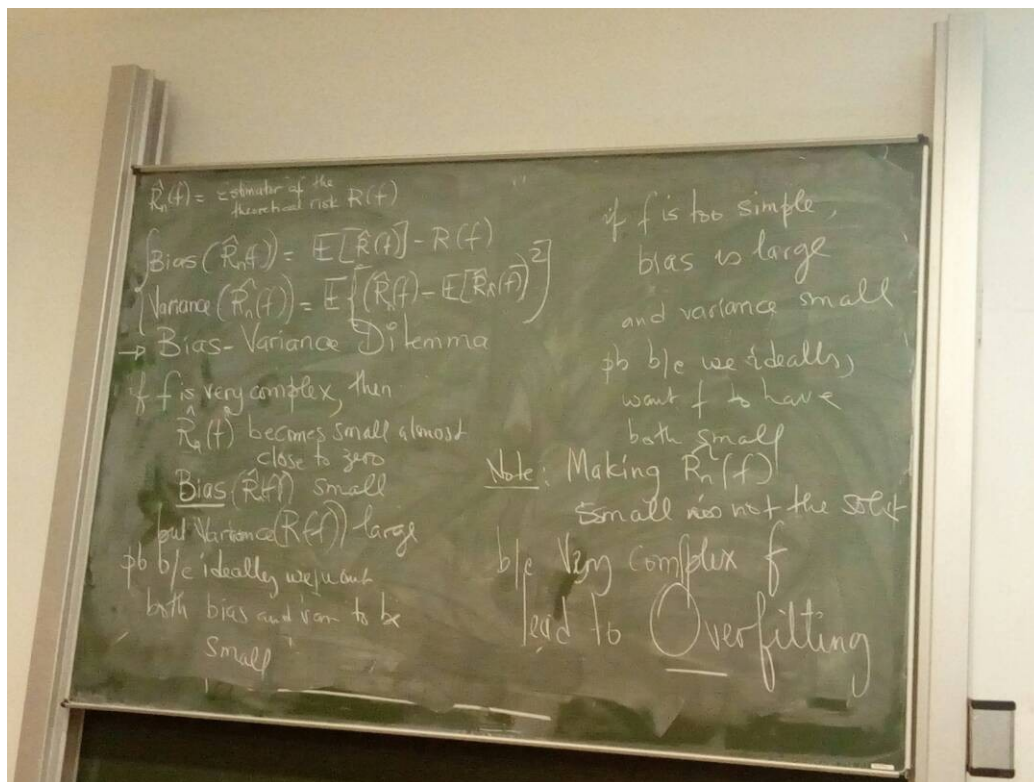 R̂n(f) = Estimator of the
theoretical risk R(f)
Bias(R̂n(f)) = E[R̂(f)] - R(f)
Variance(R̂n(f)) = E{(R̂n(f) - E[R̂n(f)])²}
→ Bias-Variance Dilemma
if f is very complex, then
R̂n(f) becomes small almost
close to zero
Bias(R̂(f)) small
but Variance(R(f)) large
pb b/c ideally we want
both bias and var to be
small
if f is too simple,
bias is large
and variance small
pb b/c we ideally,
want f to have
both small
Note: Making R̂n(f)
small is not the solut
b/c Very complex f
lead to Overfitting